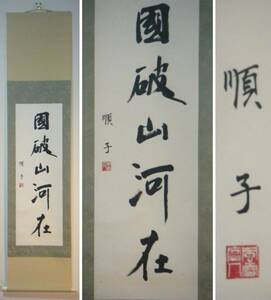 國破山河在
順子
國破山河在
順子
順子